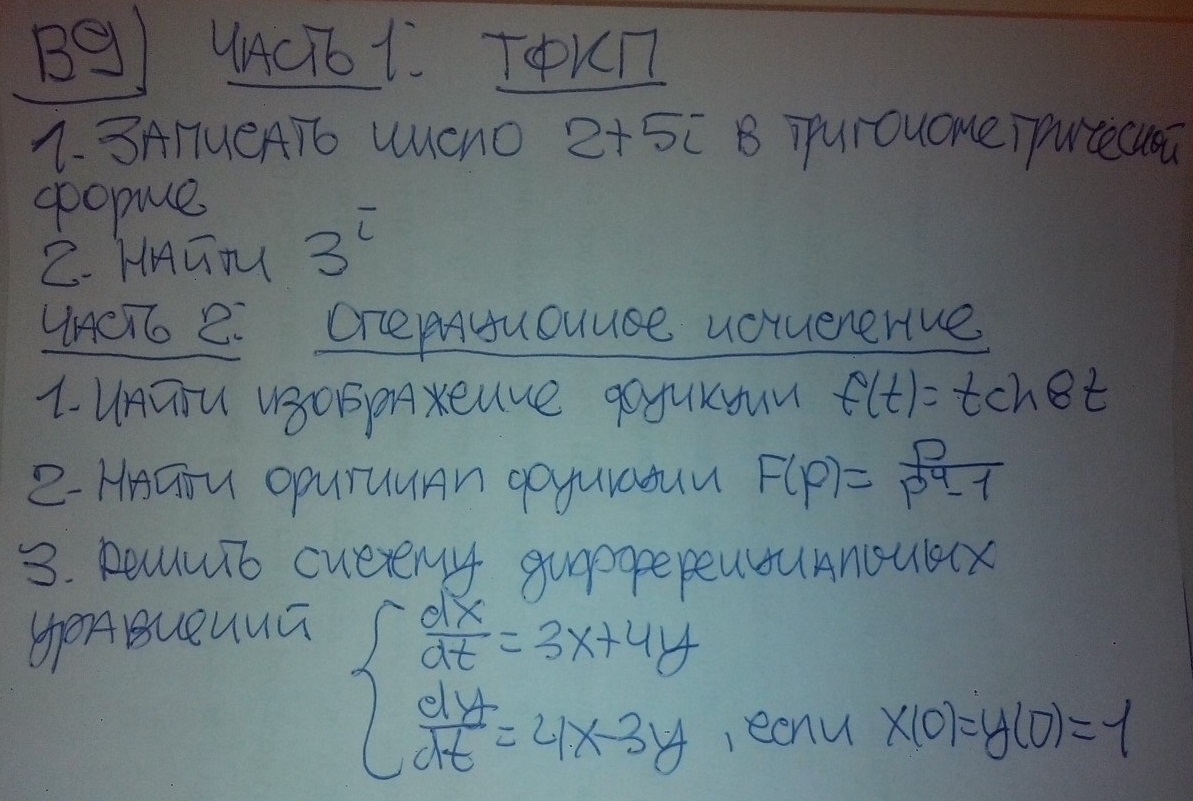 В9) ЧАСТЬ 1: ТФКП
1. ЗАПИСАТЬ число 2+5i в тригонометрической
форме
2. НАЙТИ 3^i
ЧАСТЬ 2: Операционное исчисление
1. НАЙТИ изображение функции f(t)= t ch 8t
2. НАЙТИ оригинал функции F(p)= p/(p^4-1)
3. Решить систему дифференциальных
уравнений { dx/dt = 3x+4y
dy/dt = 4x-3y , если x(0)=y(0)=1